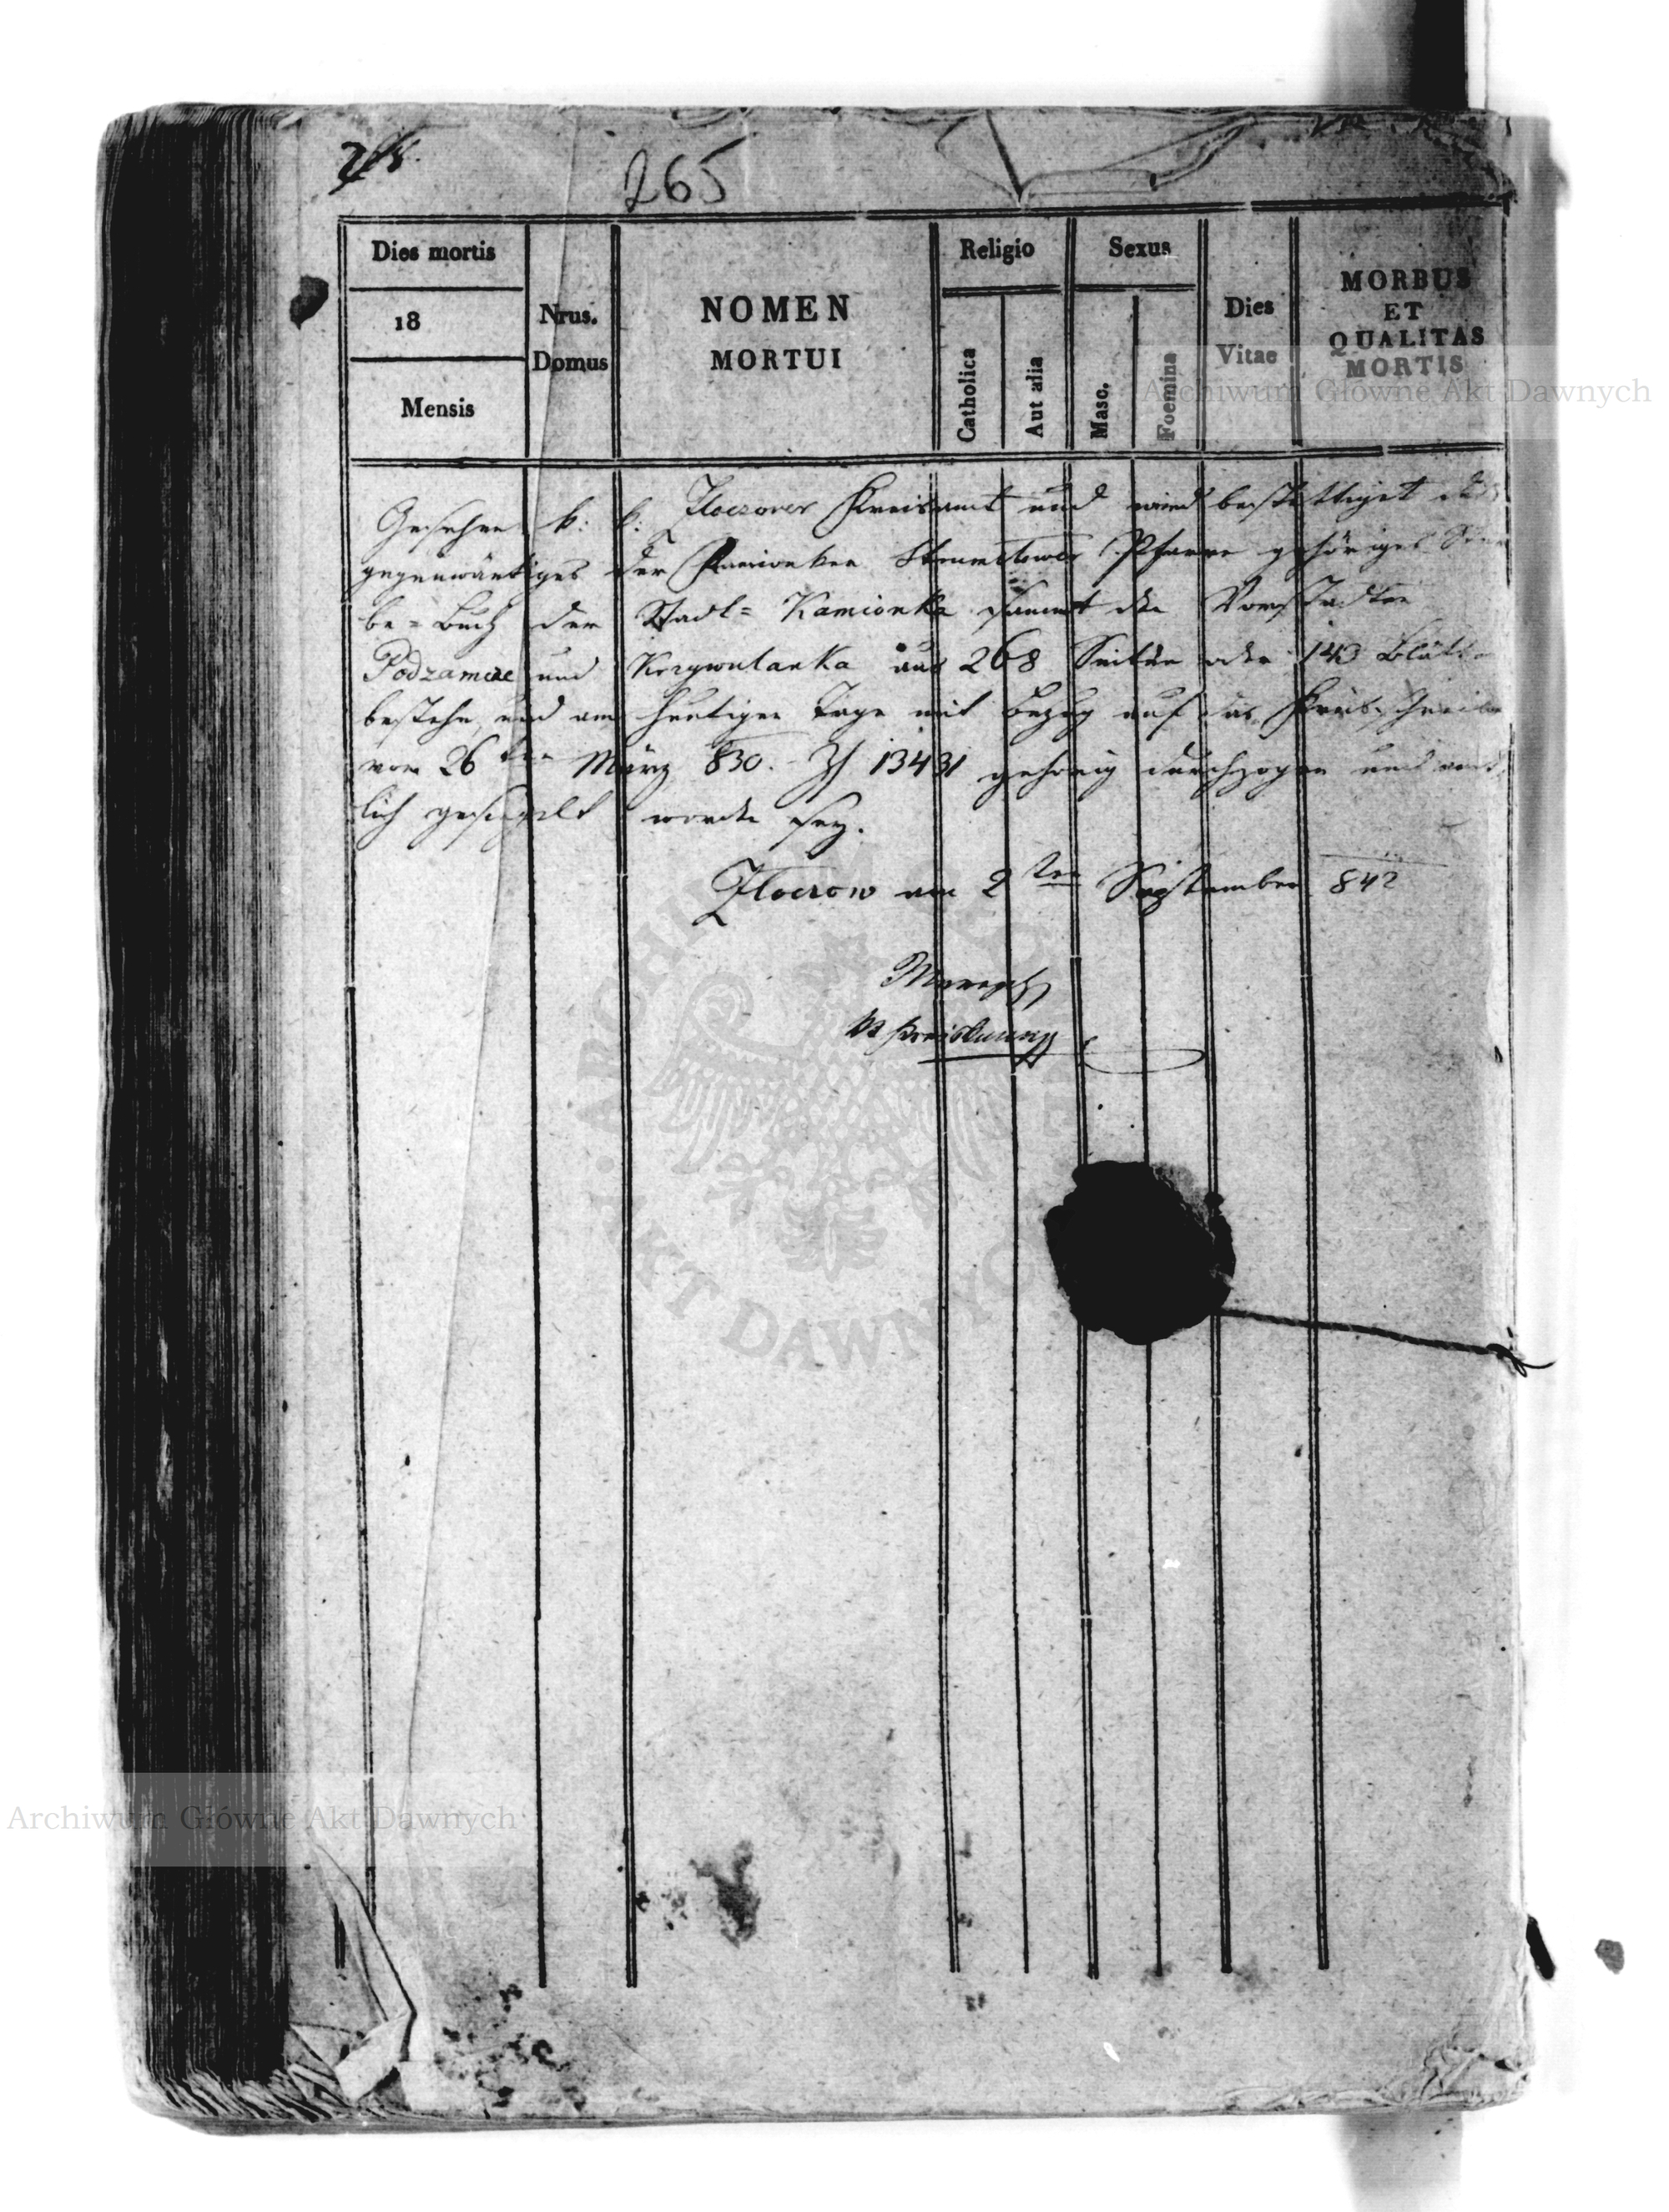 265
Dies mortis
18
Mensis
Nrus.
Domus
NOMEN
MORTUI
Religio
Catholica
Aut alia
Sexus
Masc.
Foemina
Dies
Vitae
MORBUS
ET
QUALITAS
MORTIS
Archiwum Główne Akt Dawnych
Gesehen k: k: Zloczower Kreisamt und wird bestättiget daß
gegenwärtiges der Kamionkaer Pfarre gehöriges Ster
be-Buch der Stadt- Kamionka sammt den Vorstädten
Podzamcze und aus 268 Seiten oder 143 Blätter
bestehe, und am heutigen Tage mit Bezug auf das Kreisschreiben
vom 26ten März 830. Zl 13431 gehörig durchzogen und amt
lich gesiegelt worden sey.
Zloczow am 2ten September 842
ARCHIWUM GŁÓWNE AKT DAWNYCH
Archiwum Główne Akt Dawnych